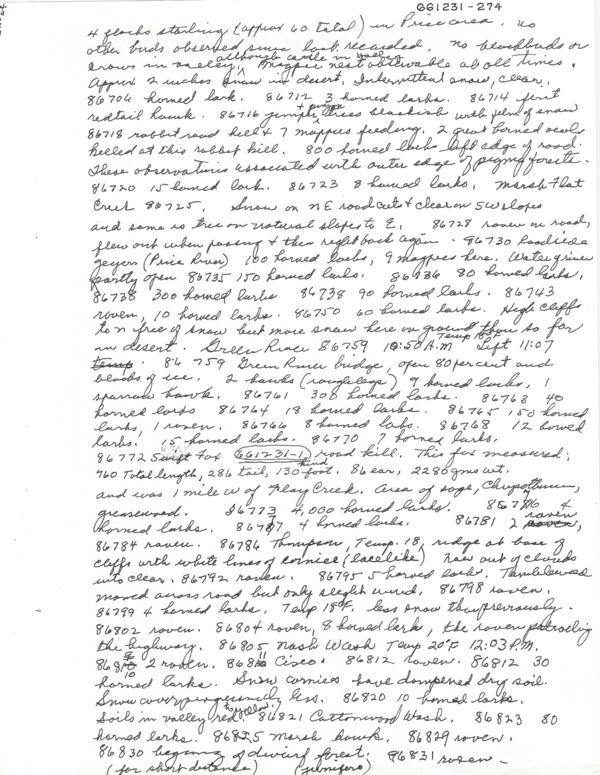 GG1231-274
4 flocks starling (approx 60 total) in Price area. No
other birds observed since last recorded. No blackbirds or
crows in valley, although cattle in valley. Magpie nest observable at all times.
Approx 2 inches snow in desert. Intermittent snow, clear.
86706 horned lark. 86712 3 horned larks. 86714 first
redtail hawk. 86716 juniper + pinyon trees blackish with film of snow
86718 rabbit road kill & 7 magpies feeding. 2 great horned owls
killed at this rabbit kill. 800 horned larks left edge of road.
These observations associated with outer edge of pigmy forests.
86720 15 horned lark. 86723 8 horned larks. Marsh Flat
Creek 86725. Snow on NE road cuts & clear on SW slopes
and same is true on natural slopes to E. 86728 raven on road,
flew out when passing & then right back again. 86730 Woodside
geyers (Price River) 100 horned larks, 9 magpies here. Water grimer
partly open 86735 150 horned larks. 86736 80 horned larks.
86738 300 horned larks 86738 90 horned larks. 86743
raven, 10 horned larks. 86750 60 horned larks. High cliffs
to N free of snow but more snow here on ground than so far
in desert. Green River 86759 10:50 A.M Temp 18° Left 11:07
temp. 86759 Green River bridge, open 80 percent and
blocks of ice. 2 hawks (roughlegs) 9 horned larks, 1
sparrow hawk. 86761 300 horned larks. 86763 40
horned larks 86764 18 horned larks. 86765 150 horned
larks, 1 raven. 86766 8 horned larks. 86768 12 horned
larks. 15 horned larks. 86770 7 horned larks.
86772 Swift Fox GG1231-1 road kill. This fox measured:
760 Total length, 286 tail, 130 hind foot. 86 ear, 2280 gms wt.
and was 1 mile W of Floy Creek. Area of sage,
greasewood. 86773 4,000 horned larks. 86776 4
horned larks. 86777 4 horned larks. 86781 2 raven,
86784 raven. 86786 Thompson, Temp. 18, ridge at base of
cliffs with white lines of cornice (lacelike) Now out of clouds
into clear. 86792 raven. 86795 5 horned larks. Tumbleweed
moved across road but only slight wind. 86798 raven.
86799 4 horned larks. Temp 18°F. less snow than previously.
86802 raven. 86804 raven, 8 horned lark, the raven patroling
the highway. 86805 Nash Wash Temp 20°F 12:03 P.M.
86810 2 raven. 86811 Cisco. 86812 raven. 86812 30
horned larks. Snow cornices have dampened dry soil.
Snow cover progressively less. 86820 10 horned larks.
Soils in valley red to yellow. 86821 Cottonwood Wash. 86823 80
horned larks. 86825 marsh hawk. 86829 raven.
86830 begining of dwarf forest. 86831 raven -
(for short distance) (junipers)